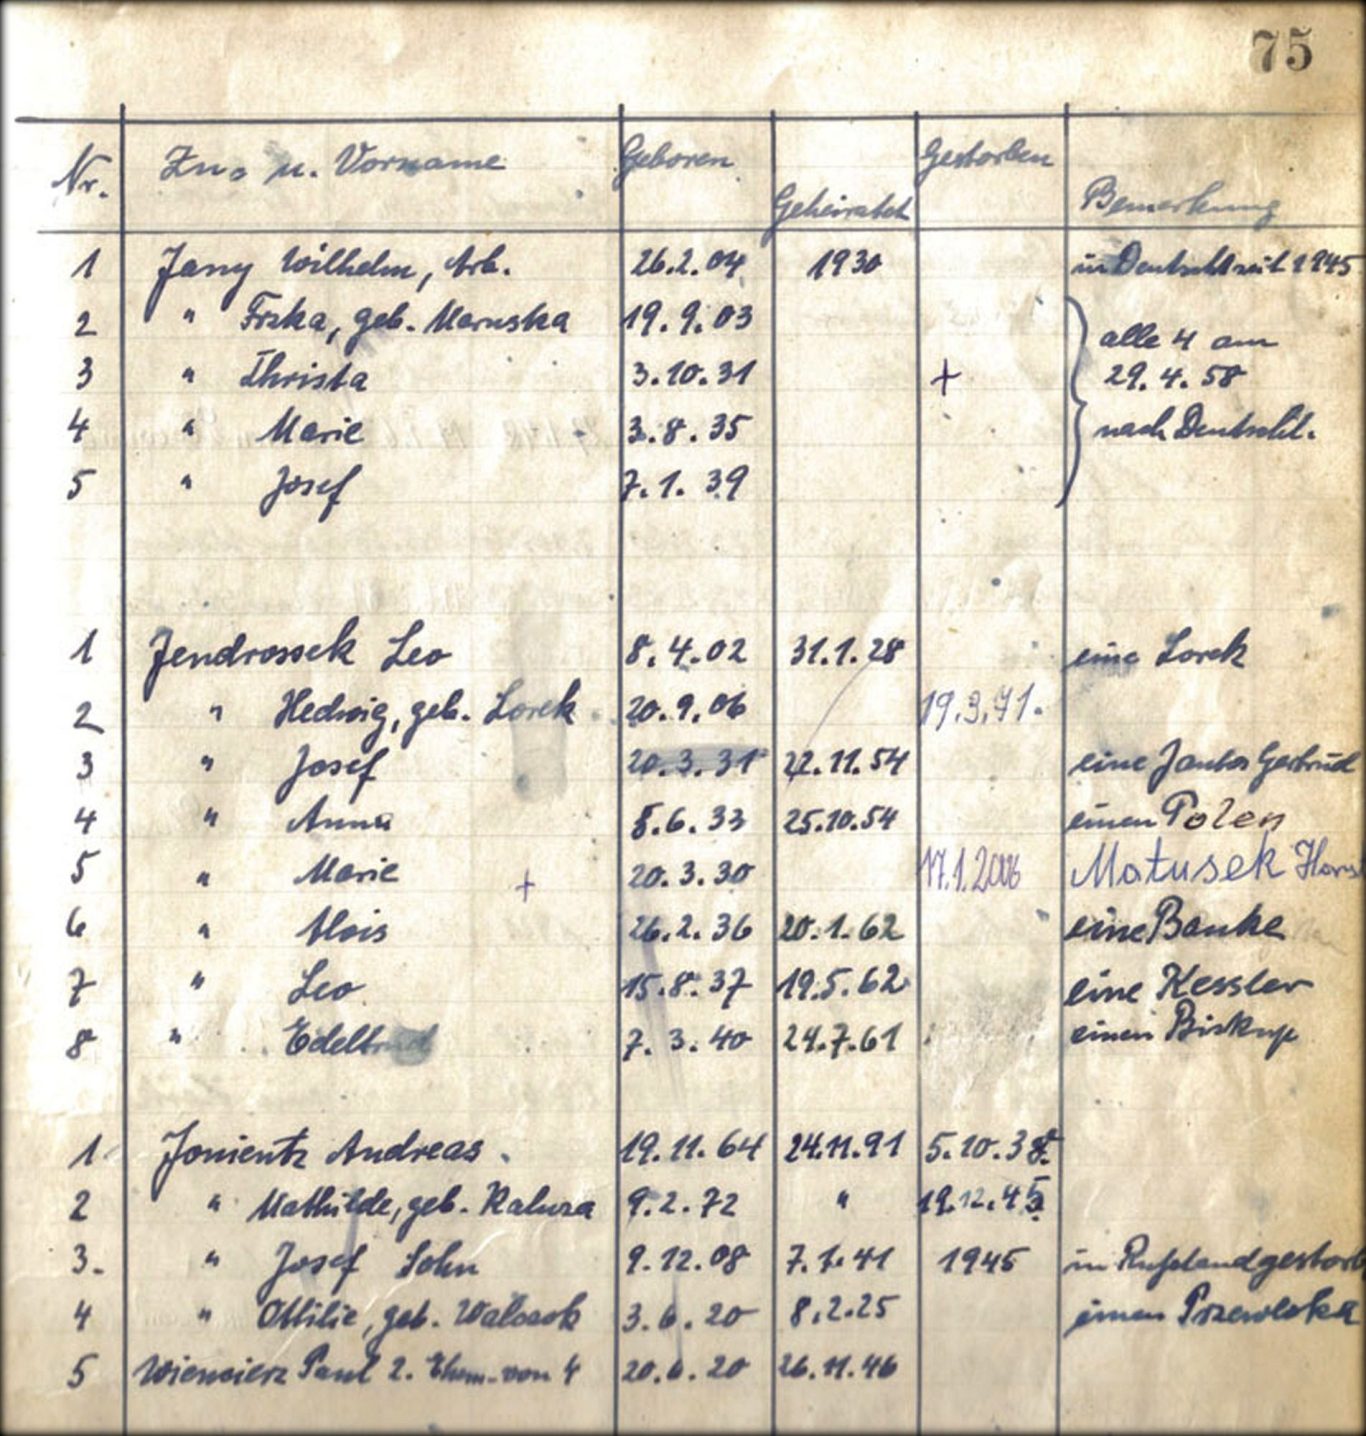 75
Nr. Zu= u. Vorname Geboren Geheiratet Gestorben Bemerkung
1 Jany Wilhelm, Arb. 26.2.04 1930 in Deutschl seit 1945
2 " Frzka, geb. Maruska 19.9.03
alle 4 am
3 " Christa 3.10.31 + 29.4.58
4 " Marie 3.8.35 nach Deutschl.
5 " Josef 7.1.39
1 Jendrossek Leo 8.4.02 31.1.28 eine Lorek
2 " Hedwig, geb. Lorek 20.9.06 19.3.71.
3 " Josef 20.3.31 22.11.54 eine Jantos Gertrud
4 " Anna 8.6.33 25.10.54 einen Polen
5 " Marie + 20.3.30 17.1.2006 Matusek
6 " Alois 26.2.36 20.1.62 eine Banke
7 " Leo 15.8.37 19.5.62 eine Kessler
8 " Edeltrud 7.3.40 24.7.61 einen Biskup
1 Jonientz Andreas. 19.11.64 24.11.91 5.10.38.
2 " Mathilde, geb. Kaluza 9.2.72 " 19.12.45
3. " Josef Sohn 9.12.08 7.1.41 1945 in Rußland gestorb
4 " Ottilie, geb. Walczok 3.6.20 8.2.25 einen
5 Wiencierz Paul 2. Ehem. von 4 20.6.20 26.11.46